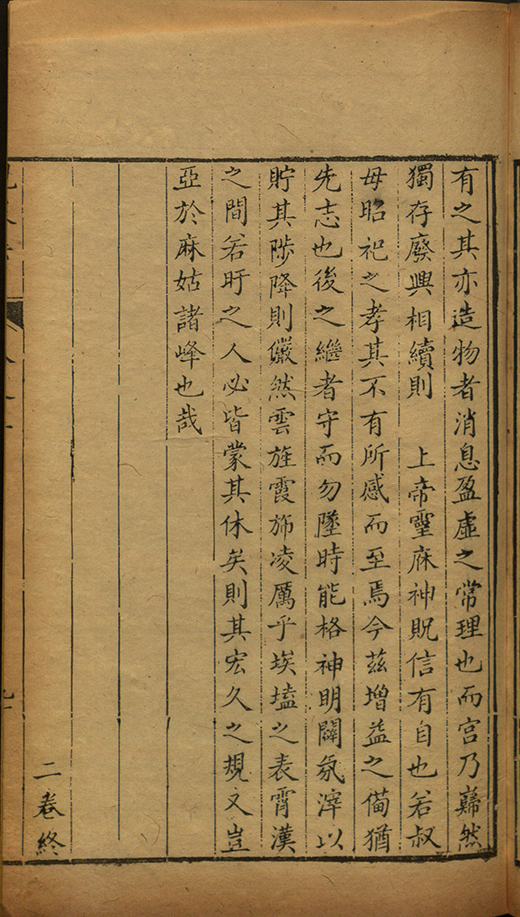 有之其亦造物者消息盈虛之常理也而宫乃巋然
獨存廢興相續則　上帝靈庥神貺信有自也若叔
毋昭祀之孝其不有所感而至焉今茲增益之僃猶
先志也後之繼者守而勿墜時能格神明闢氛滓以
貯其陟降則儼然雲旌霞斾凌厲乎埃壒之表霄漢
之間若盱之人必皆蒙其休矣則其宏久之規又豈
亞於麻姑諸峰也哉
二卷終